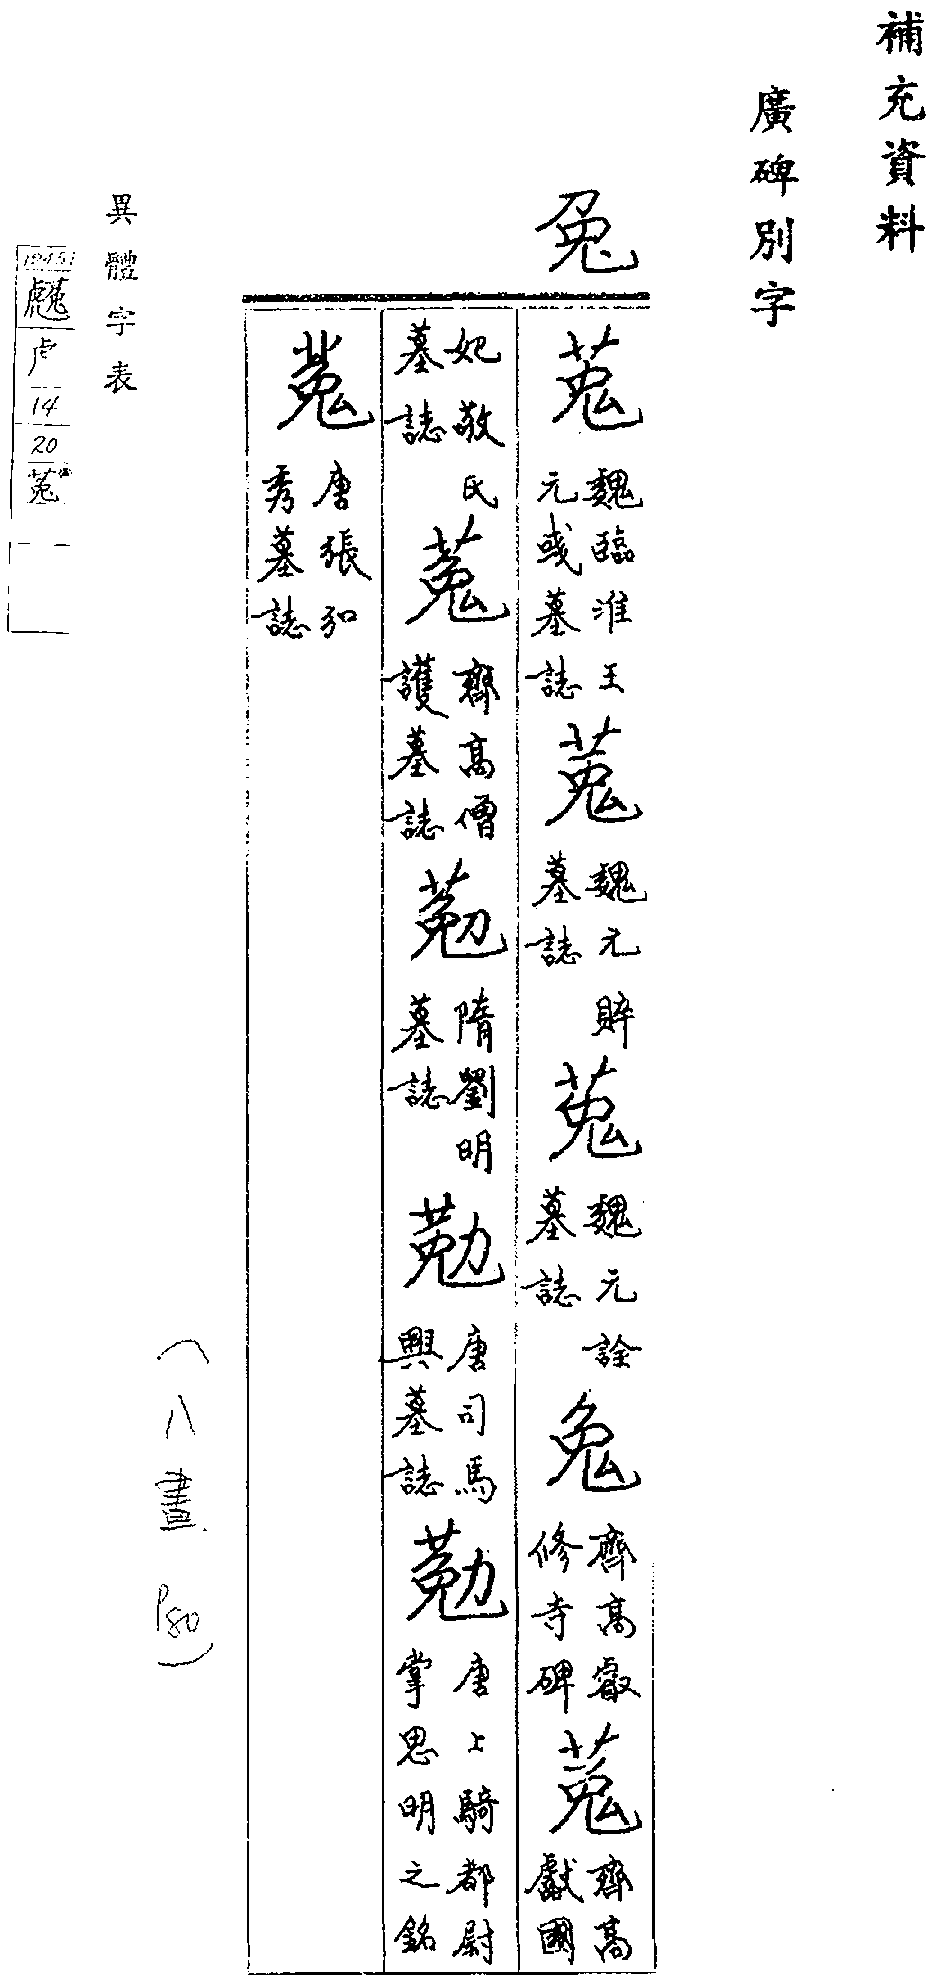 補充資料
廣碑別字
兔
菟 魏臨淮王元彧墓誌 菟 魏元賥墓誌 菟 魏元詮墓誌 兔 齊高叡修寺碑 菟 齊高獻國
妃敬氏墓誌 菟 齊高僧護墓誌 隋劉明墓誌 唐司馬興墓誌 唐上騎都尉掌思明之銘
唐張弘秀墓誌
異體字表
虍
14
20
菟
(八畫 P80)